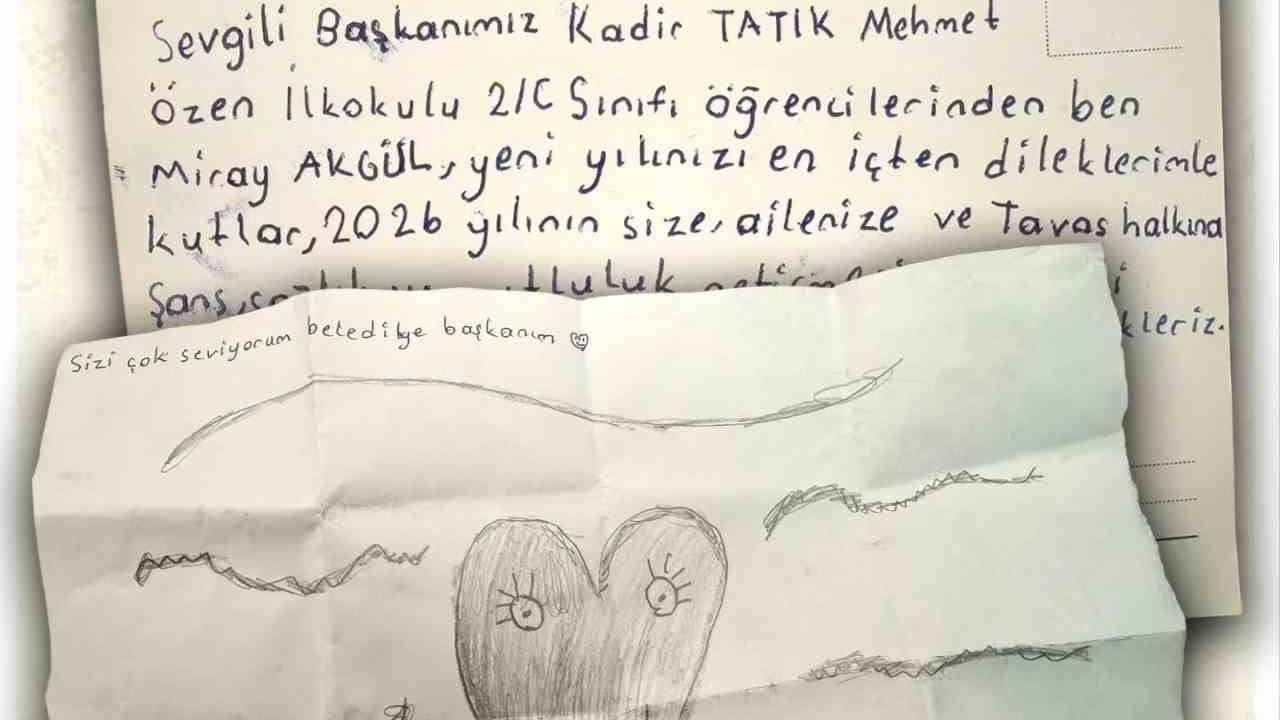 Sevgili Başkanımız Kadir TATIK Mehmet
Özen İlkokulu 2/C Sınıfı öğrencilerinden ben
Miray AKGÜL, yeni yılınızı en içten dileklerimle
kutlar, 2026 yılının size, ailenize ve Tavas halkına
Şans,
Sizi çok seviyorum belediye başkanım